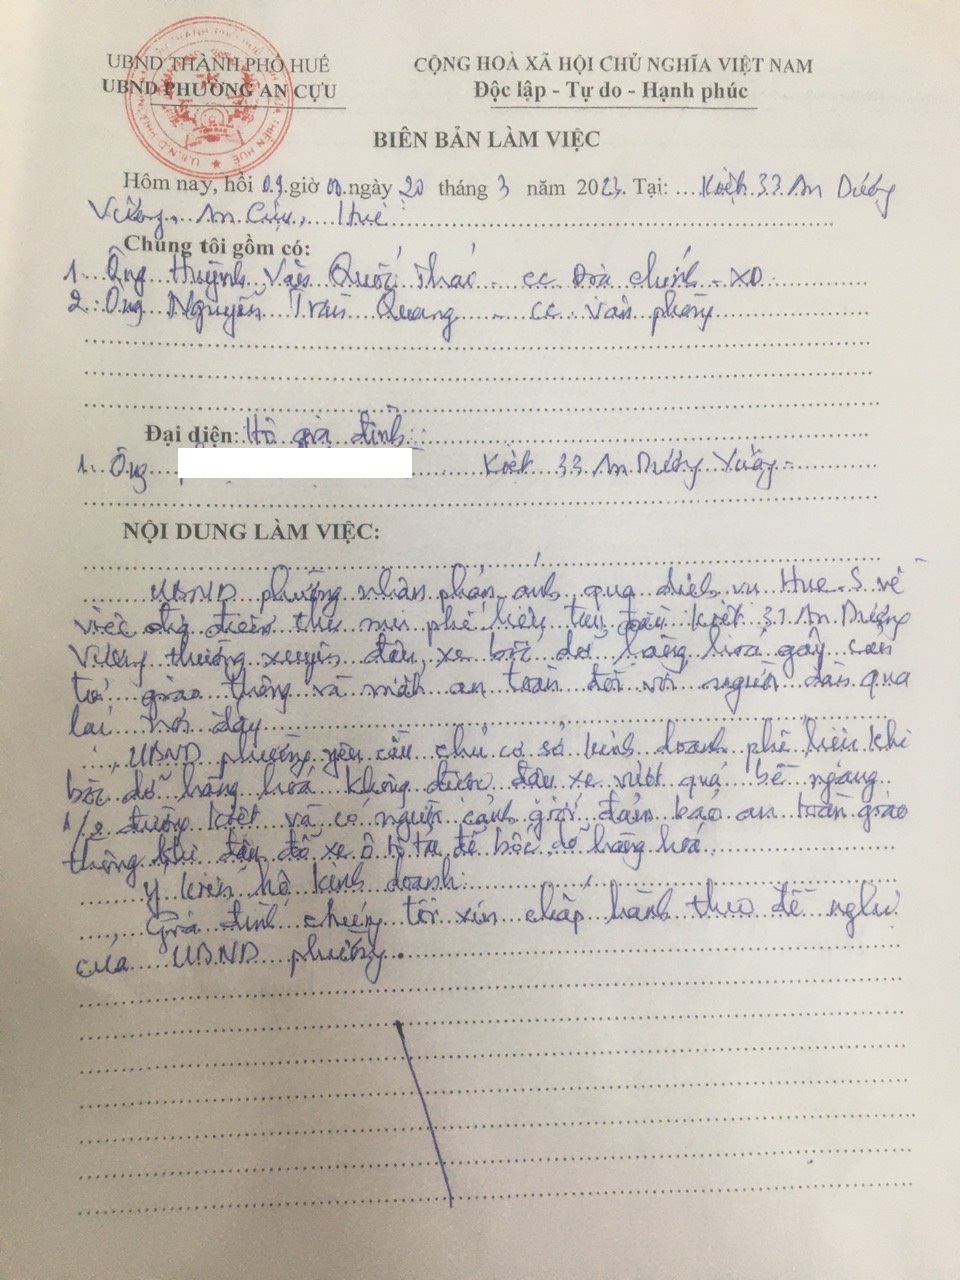 UBND THÀNH PHỐ HUẾ
UBND PHƯỜNG AN CỰU
CỘNG HOÀ XÃ HỘI CHỦ NGHĨA VIỆT NAM
Độc lập - Tự do - Hạnh phúc
BIÊN BẢN LÀM VIỆC
Hôm nay, hồi 09 giờ 00 ngày 20 tháng 3 năm 2023. Tại: Kiệt 33 An Dương
Vương, An Cựu, Huế
Chúng tôi gồm có:
1. Ông Huỳnh Văn Quốc Thái - CC Địa chính - XD
2. Ông Nguyễn Trần Quang - CC Văn phòng
Đại diện: Hộ gia đình
1. Ông Kiệt 33 An Dương Vương
NỘI DUNG LÀM VIỆC:
UBND phường nhận phản ánh qua dịch vụ Hue-S về
việc địa điểm thu mua phế liệu tại đầu kiệt 31 An Dương
Vương thường xuyên đậu xe bốc dỡ hàng hoá gây cản
trở giao thông và mất an toàn đối với người dân qua
lại nơi đây
UBND phường yêu cầu chủ cơ sở kinh doanh phế liệu khi
bốc dỡ hàng hoá không được đậu xe vượt quá bề ngang
1/2 đường kiệt và có người cảnh giới đảm bảo an toàn giao
thông khi đậu đỗ xe ô tô tải để bốc dỡ hàng hoá.
Ý kiến hộ kinh doanh:
Gia đình chúng tôi xin chấp hành theo đề nghị
của UBND phường.